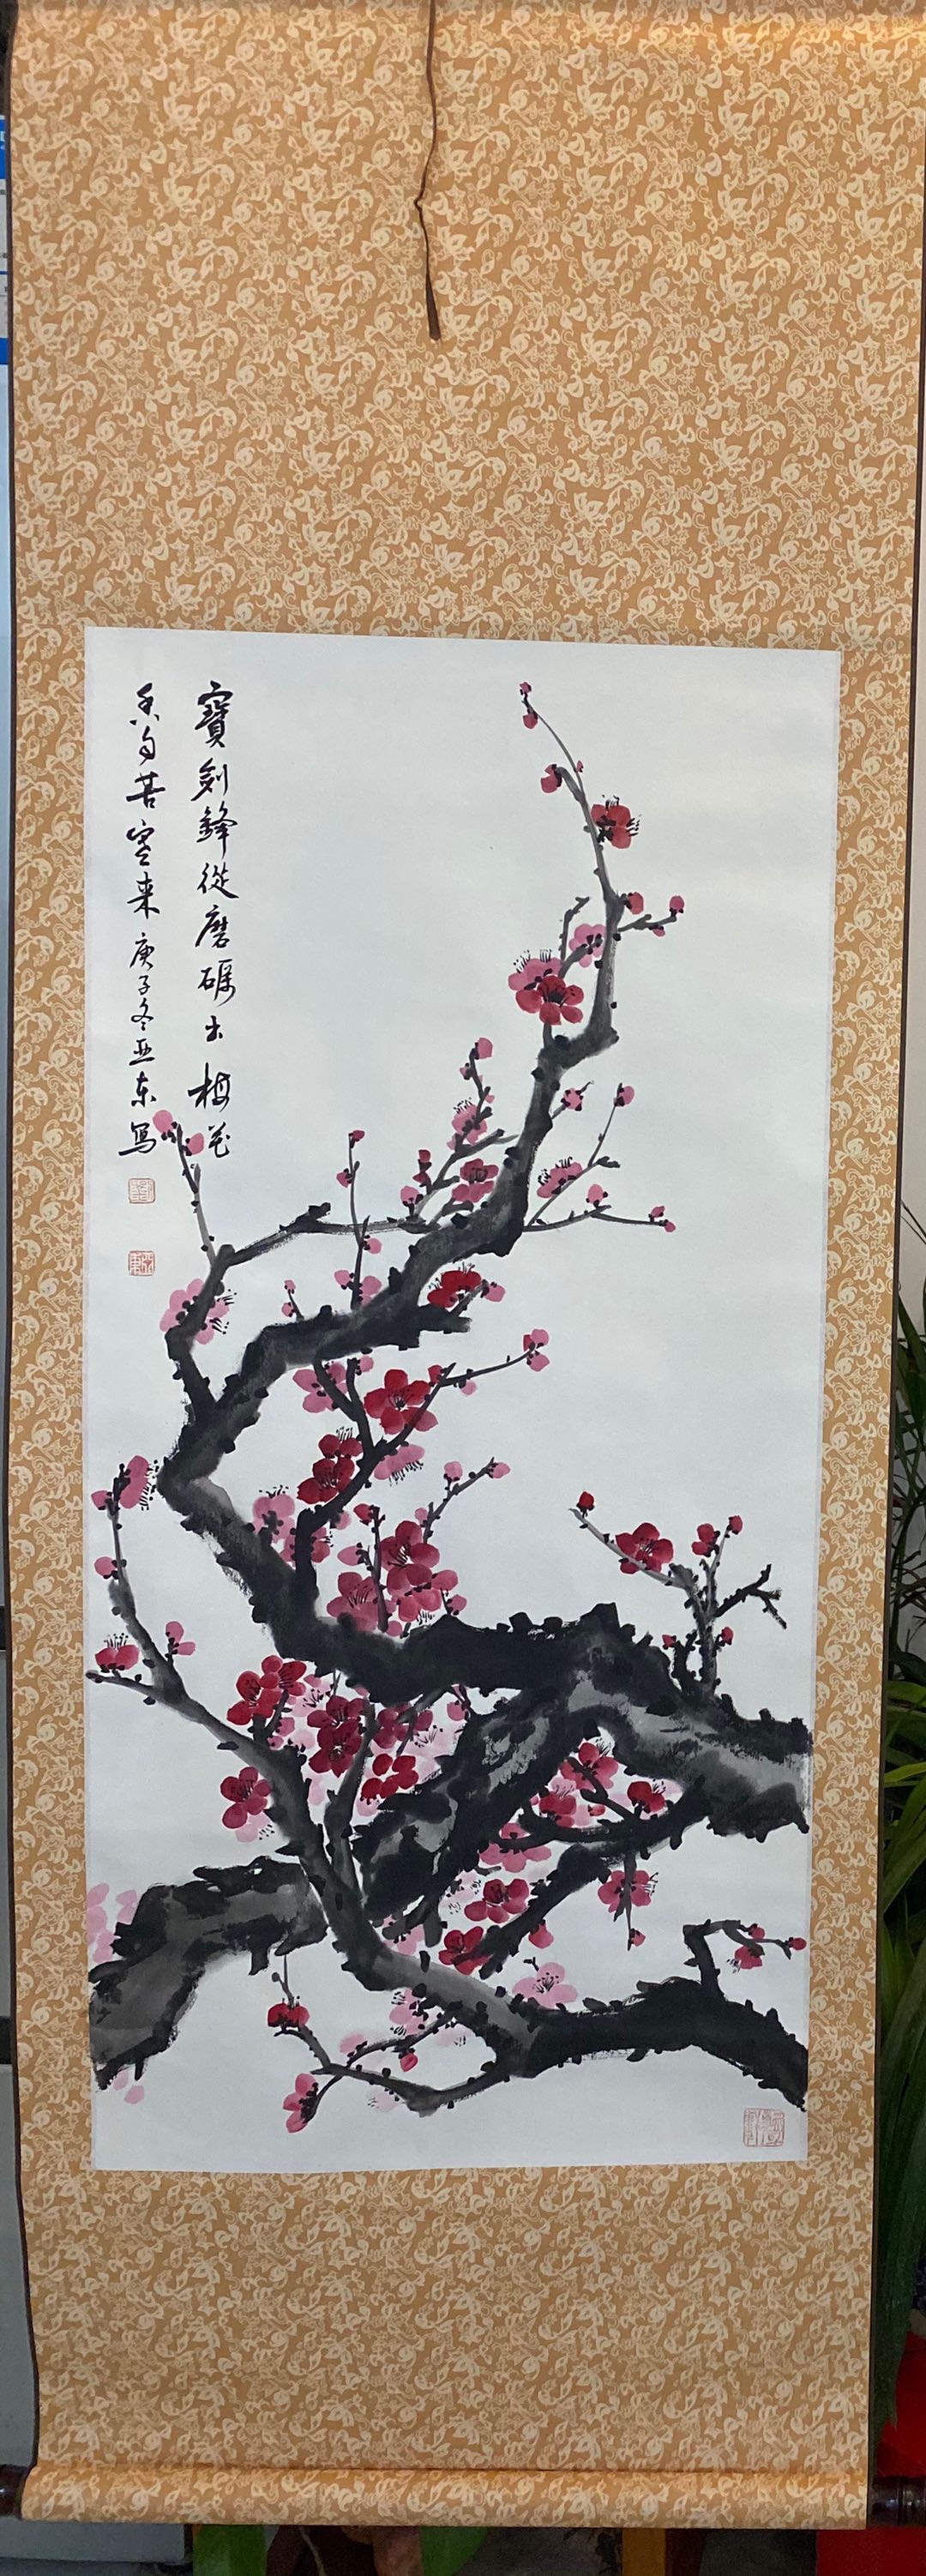 寶劍鋒從磨礪出梅花
香自苦寒来 庚子冬亚东写